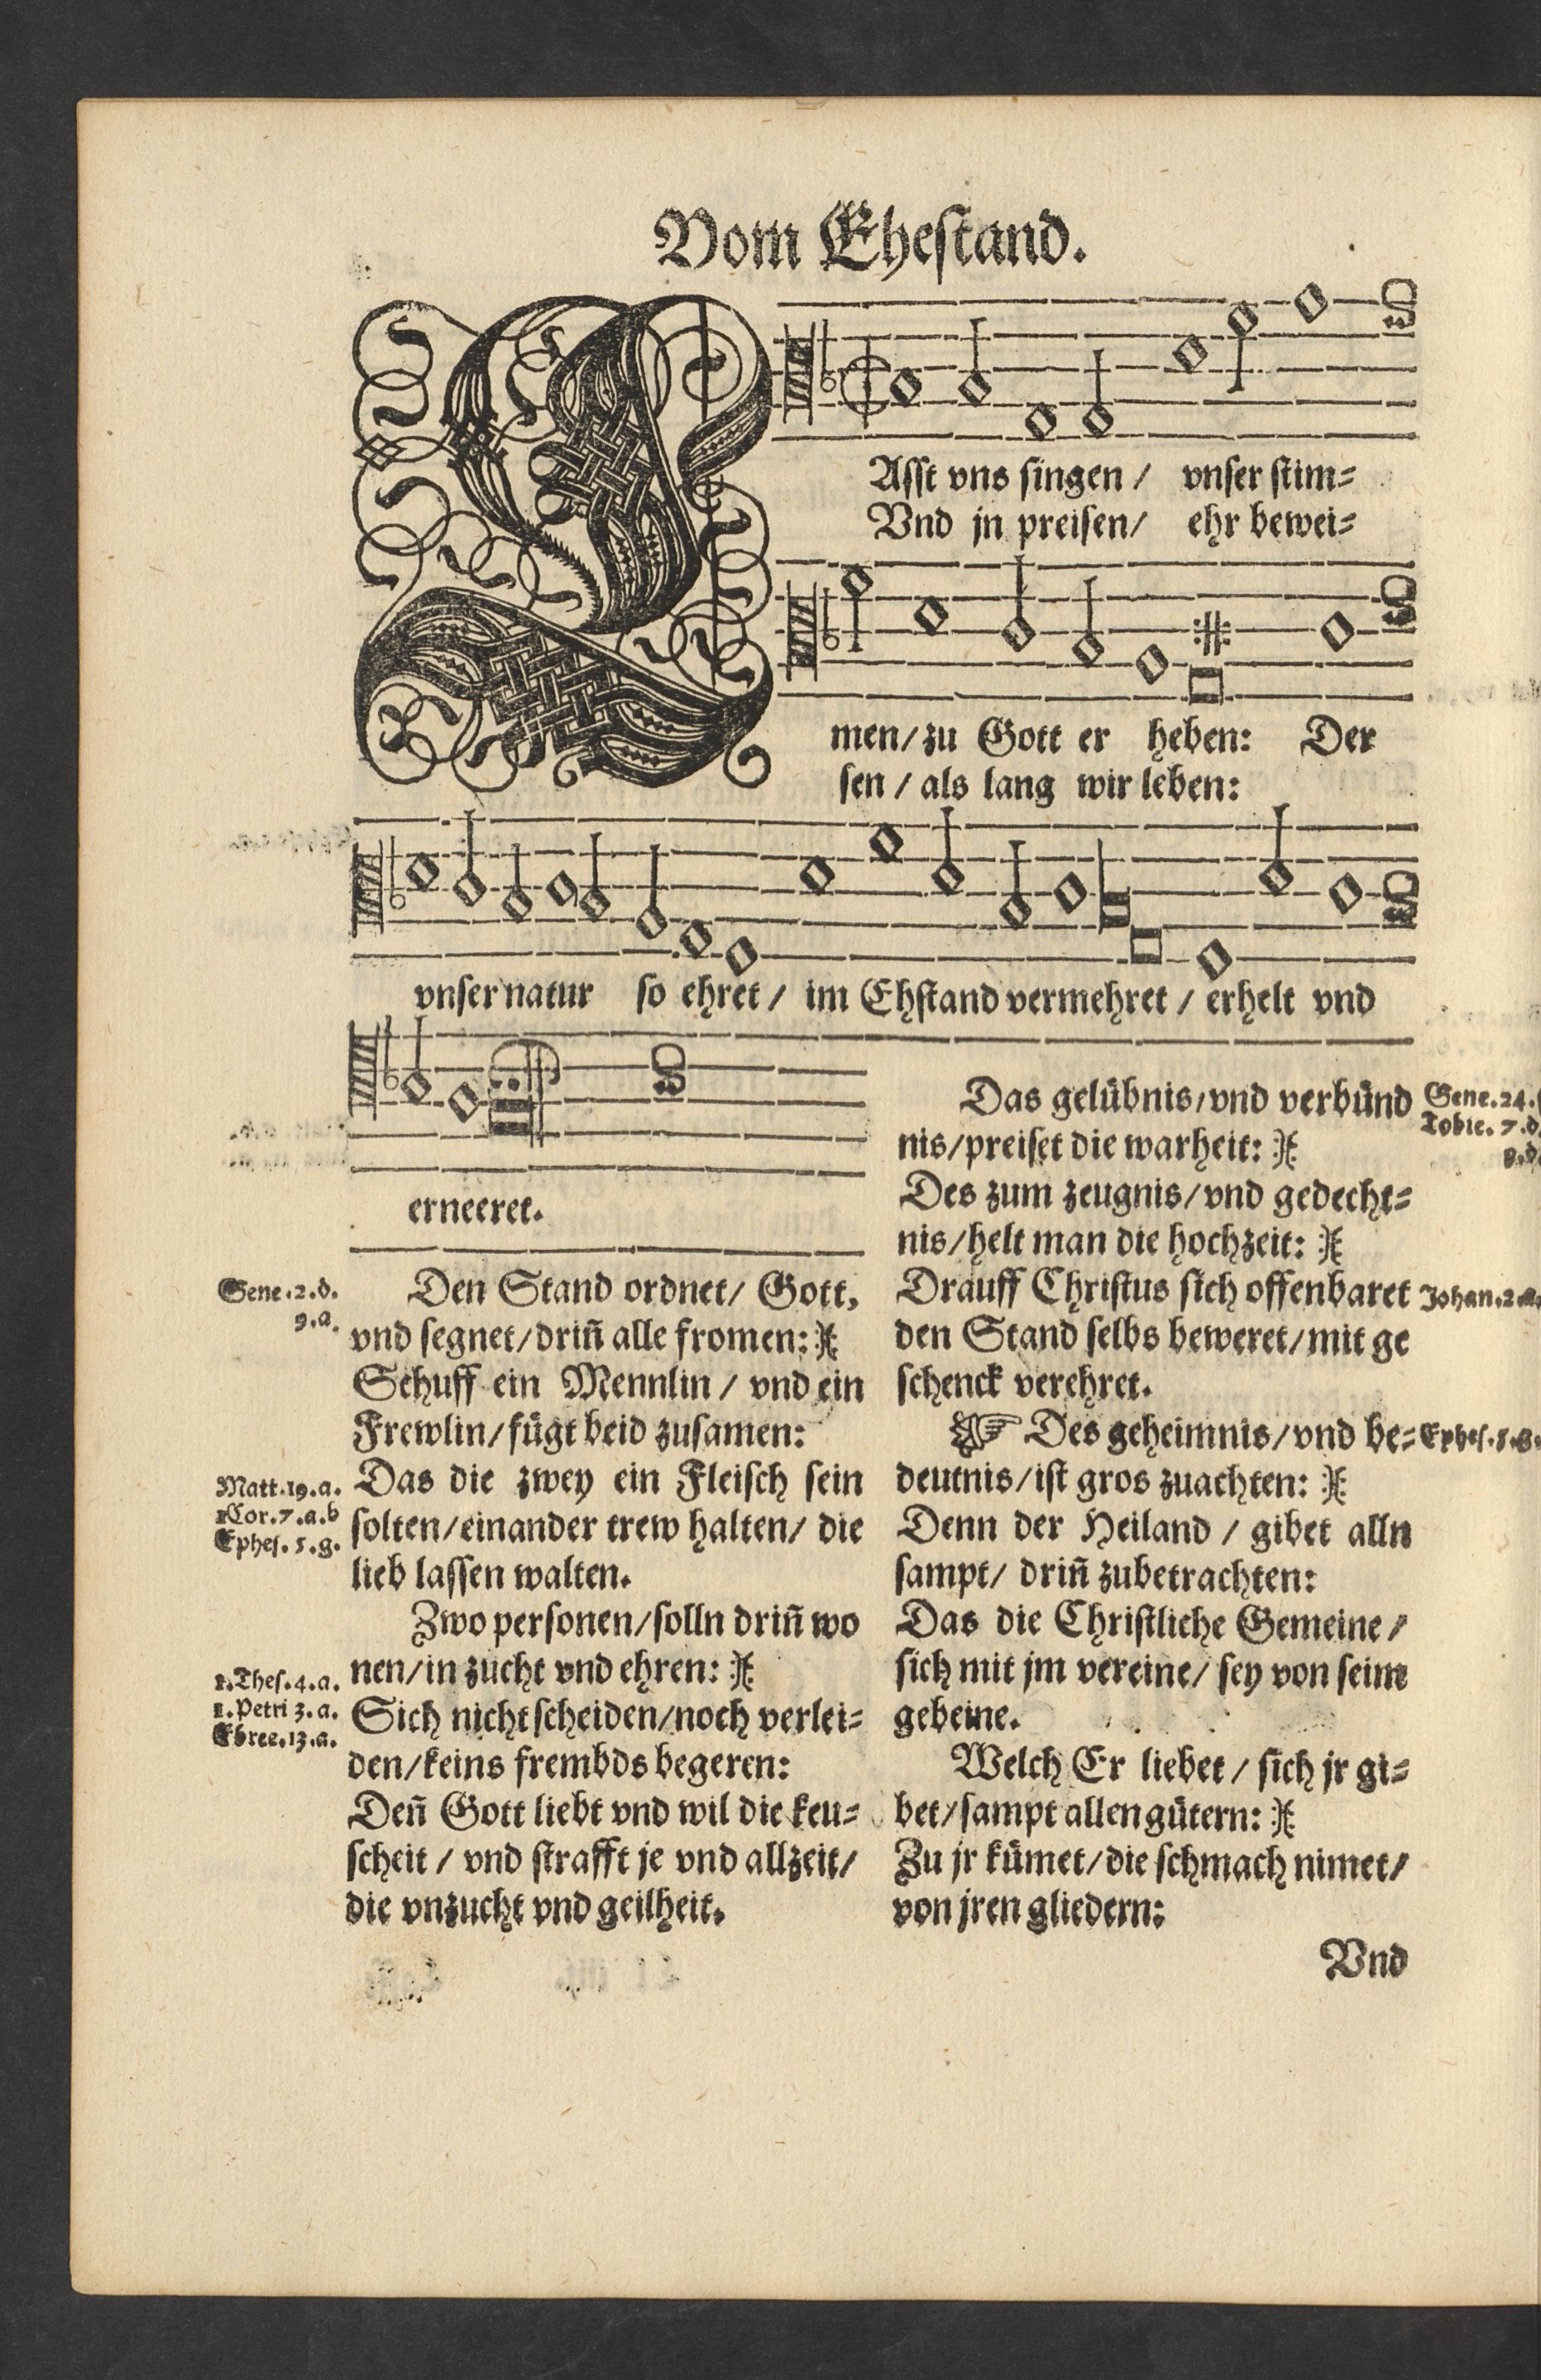 Vom Ehestand.
LAsst vns singen / vnser stim=
Vnd jn preisen/ ehr bewei=
men/zu Gott er heben: Der
sen / als lang wir leben:
vnser natur so ehret / im Ehstand vermehret / erhelt vnd
erneeret.
Sene.2.d.
9.a.
Den Stand ordnet/ Gott,
vnd segnet/driñ alle fromen:
Schuff ein Mennlin / vnd ein
Frewlin/fügt beid zusamen:
Matt.19.a.
1Cor.7.a.b
Ephes.5.g.
Das die zwey ein Fleisch sein
solten/einander trew halten/ die
lieb lassen walten.
Zwo personen/solln driñ wo
nen/in zucht vnd ehren:
1.Thes.4.a.
1.Petri 3.a.
Ebree.13.a.
Sich nicht scheiden/noch verlei=
den/keins frembds begeren:
Deñ Gott liebt vnd wil die keu=
scheit / vnd strafft je vnd allzeit/
die vnzucht vnd geilheit.
Das gelübnis/vnd verbünd
nis/preiset die warheit:
Gene.24.
Tobie.7.d.
8.d.
Des zum zeugnis/vnd gedecht=
nis/helt man die hochzeit:
Drauff Christus sich offenbaret
Johan.2.a.
den Stand selbs beweret/mit ge
schenck verehret.
☞ Des geheimnis/vnd be=
Ephes.5.g.
deutnis/ist gros zuachten:
Denn der Heiland / gibet alln
sampt/ driñ zubetrachten:
Das die Christliche Gemeine /
sich mit jm vereine/ sey von seim
gebeine.
Welch Er liebet / sich jr gi=
bet/sampt allen gütern:
Zu jr kümet/die schmach nimet/
von jren gliedern:
Vnd